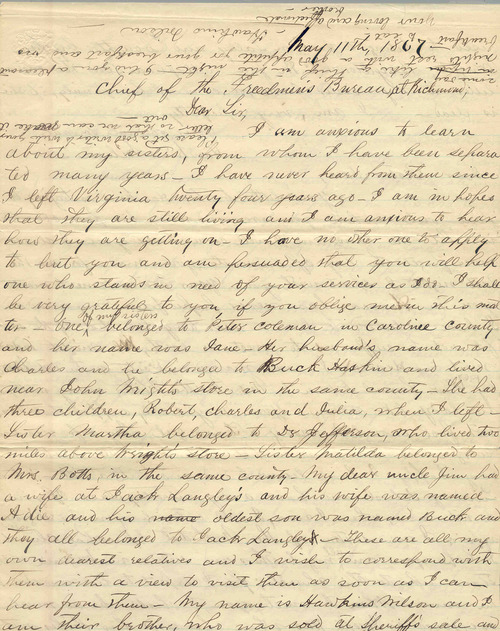 May 11th, 1867
Chief of the Freedmen's Bureau, at Richmond;
Dear Sir,
I am anxious to learn
about my sisters, from whom I have been separa
ted many years - I have never heard from them since
I left Virginia twenty four years ago - I am in hopes
that they are still living and I am anxious to hear
how they are getting on - I have no other one to apply
to but you and am persuaded that you will help
one who stands in need of your services as I do - I shall
be very grateful to you, if you oblige me in this mat
ter - One of my sisters belonged to Peter Coleman in Caroline County
and her name was Jane - Her husband's name was
Charles and he belonged to Buck Haskin and lived
near John Wright's store in the same county - She had
three children, Robert, Charles and Julia, when I left -
Sister Martha belonged to Dr Jefferson, who lived two
miles above Wright's store - Sister Matilda belonged to
Mrs. Botts, in the same county - My dear uncle Jim had
a wife at Jack Langley's and his wife was named
Adie and his name oldest son was named Buck and
they all belonged to Jack Langley - These are all my
own dearest relatives and I wish to correspond with
them with a view to visit them as soon as I can
hear from them - My name is Hawkins Wilson and I
am their brother, who was sold at Sheriff's sale and
Your loving and affectionate
brother -
Hawkins Wilson
Please get a good writer to write your
letter so that we can